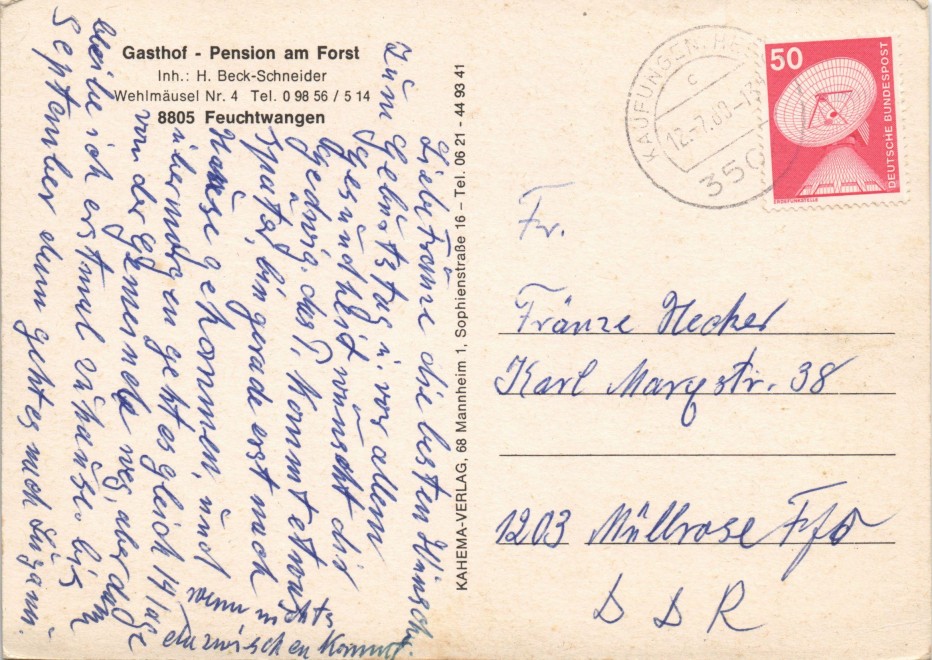 Gasthof - Pension am Forst
Inh.: H. Beck-Schneider
Wehlmäusel Nr. 4 Tel. 0 98 56 / 5 14
8805 Feuchtwangen
Liebe Fränze die besten Wünsche
zum Gebürtstag ü. vor allem
Gesündheit wünscht dir
Hedwig. das P. kommt etwas
später, bin gerade erst nach
Haüse gekommen, ünd
übermorgen geht es gleich 14 Tage
von der gemeinde weg, aber dan
bleibe ich erstmal zühaüse. bis
September dann gehts nach Lügano.
wenn nichts
dazwischen kommt.
KAHEMA-VERLAG, 68 Mannheim 1, Sophienstraße 16 – Tel. 06 21 - 44 93 41
KAUFUNGEN, HESS
c
12.-7.80-13
350
50
DEUTSCHE BUNDESPOST
ERDEFUNKSTELLE
Fr.
Fränze Hecker
Karl Marxstr. 38
1203 Müllrose Ffo
DDR